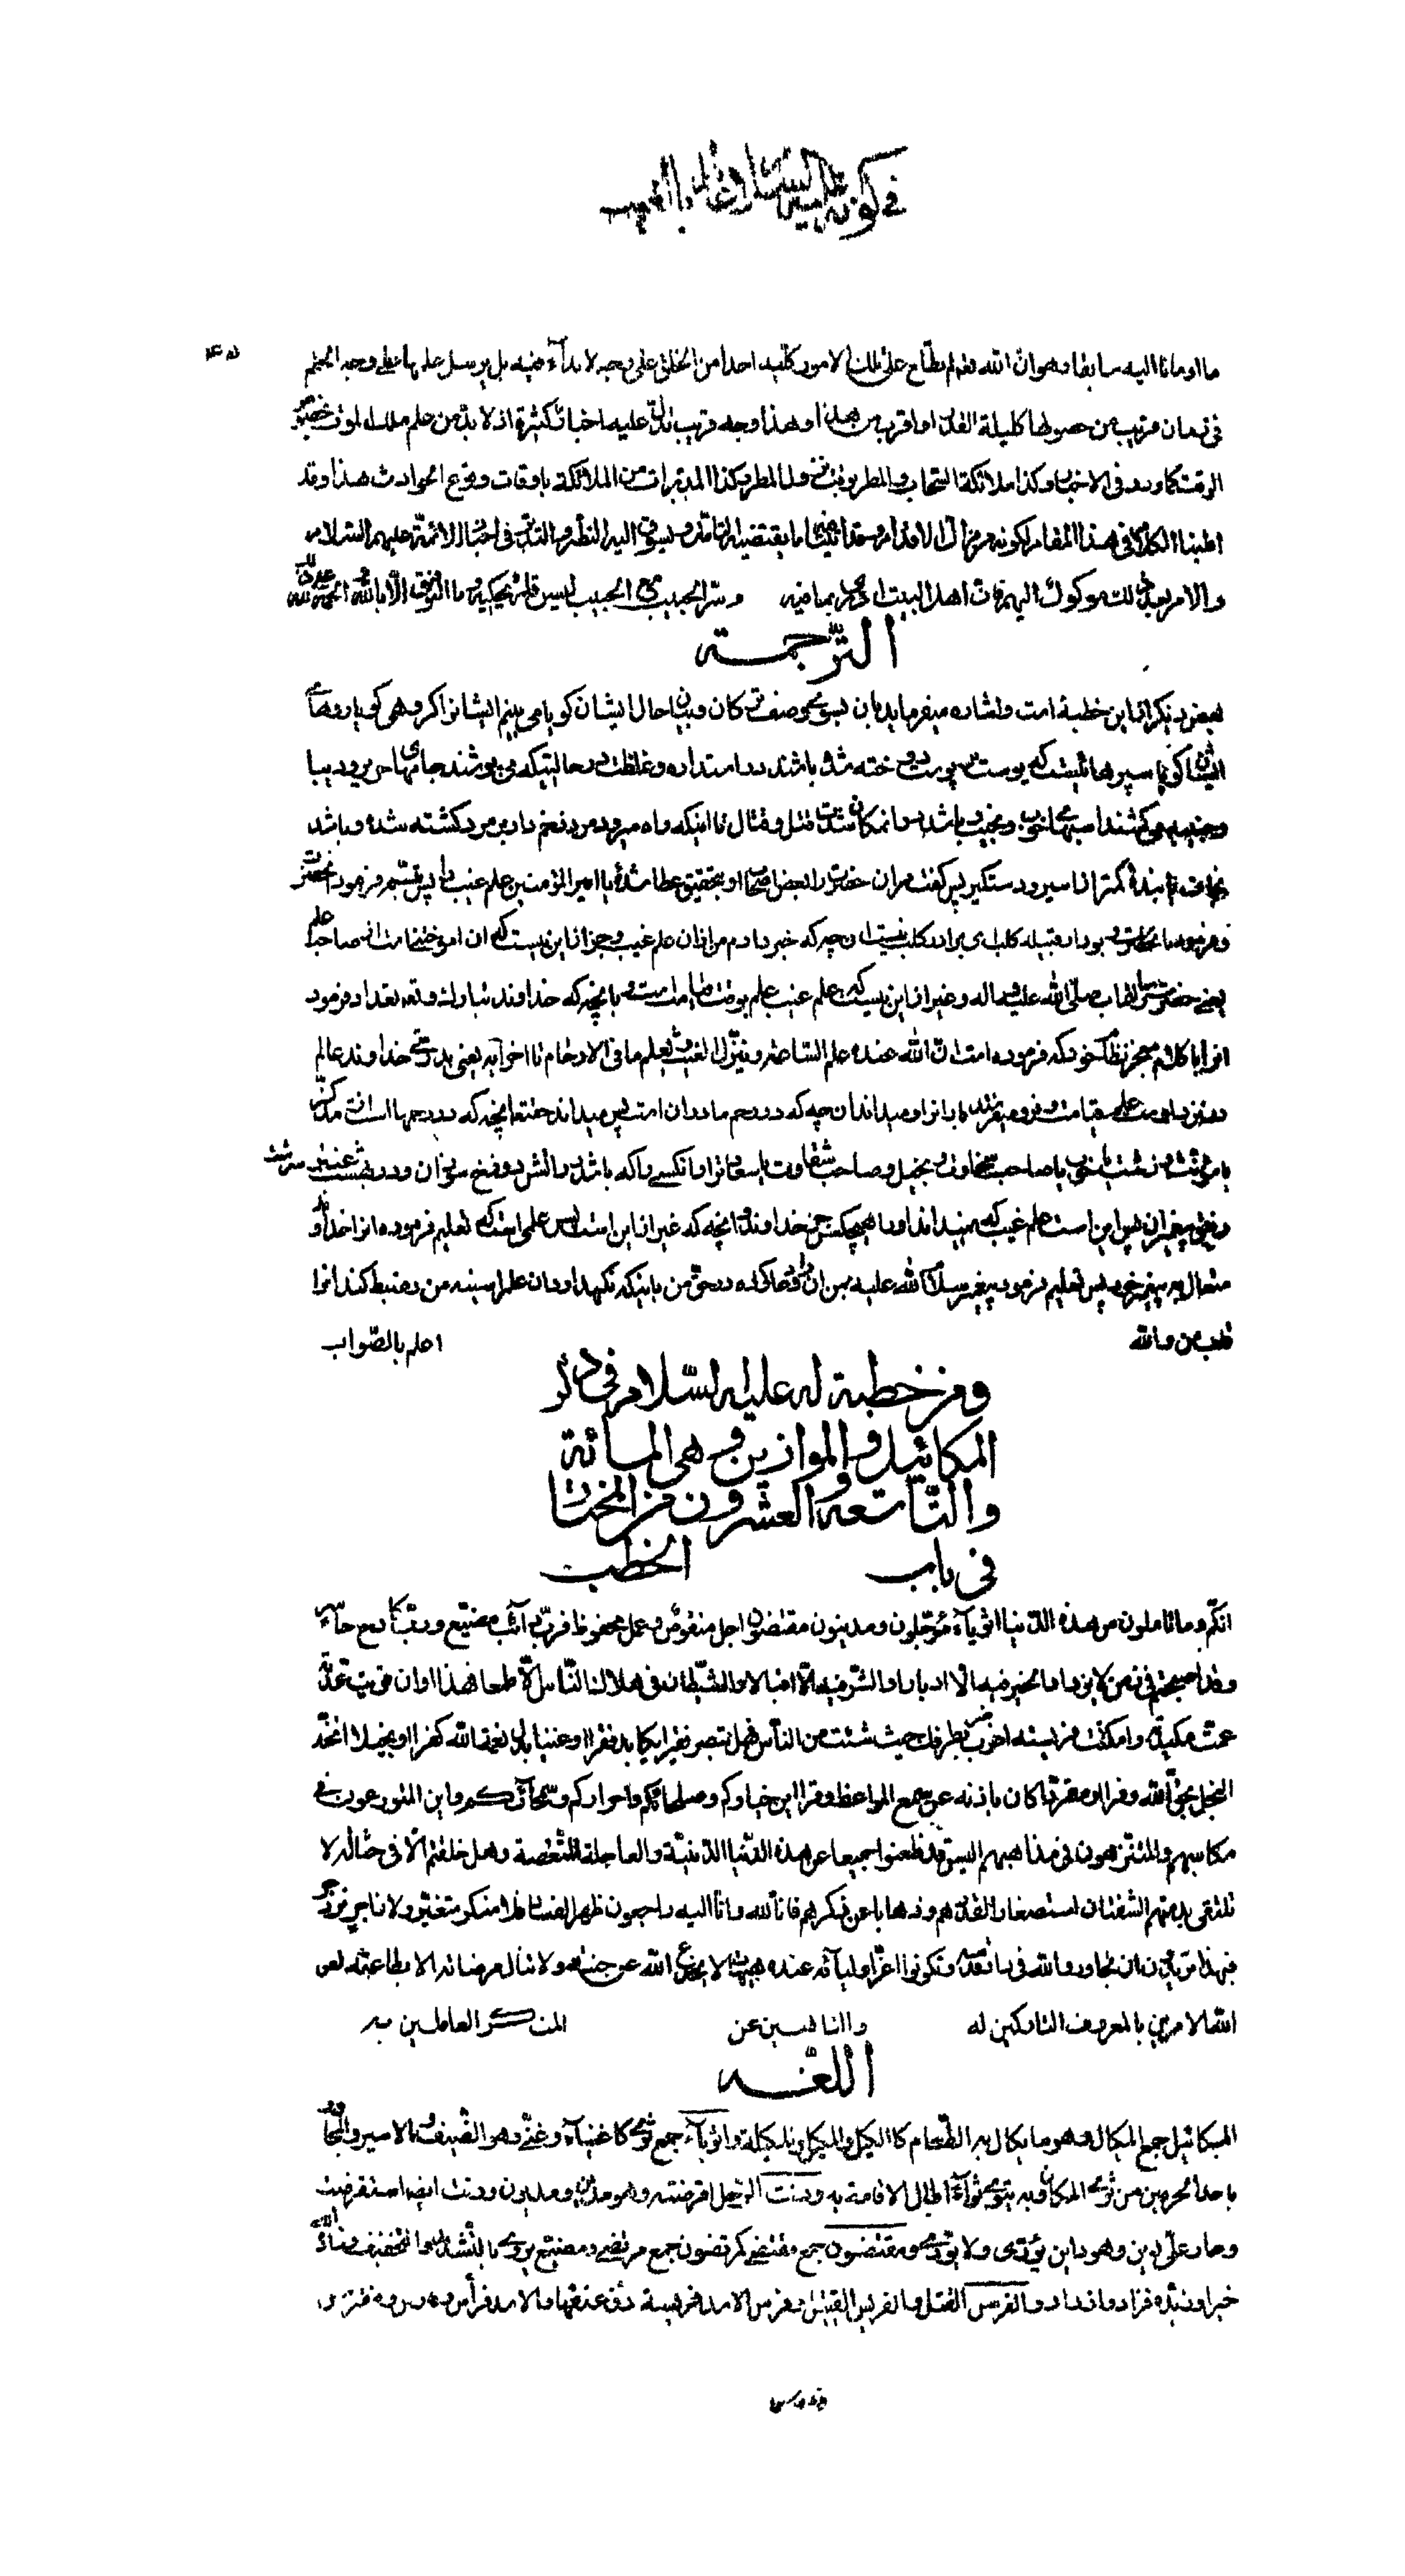 في كونه عليه السلام عالما بالغيب
ما اومانا اليه سابقا وهو ان الله لم يطلع على تلك الامور كلية احدا من الخلق على وجه لا بداء فيه بل يرسل علمها على وجه الحتم
في زمان قريب من حصولها كليلة القدر او اقرب من هذا وهذا وجه قريب تدل عليه اخبار كثيرة اذ لا بد من علم ملك الموت بخصوص
الوقت كما ورد في الاخبار وكذا ملائكة السحاب والمطر بوقت نزول المطر وكذا المدبرات من الملائكة باوقات وقوع الحوادث هذا وقد
اطنبنا الكلام في هذا المقام لكونه من مزال الاقدام وقد اتينا ما يقتضيه التأمل ويسوق اليه النظر والتدبر في اخبار الائمة عليهم السلام
والامر بعد ذلك موكول اليهم فان اهل البيت ادرى بما فيه وسر الحبيب مع الحبيب ليس قلم يحكيه وما التوفيق الا بالله
الترجمة
بعض ديكر از اين خطبه است واشاره ميفرمايد بان بسوى وصف تركان وبيان احوال ايشان كويا مى بينم ايشانرا كروهى كه كويا روهاى
ايشان كويا سپرهائيست كه پوست بر پوست دوخته شده باشند در استداره وغلظت در حالتيكه مى پوشند جامهاى حرير وديبا
ومى كشند اسبهاى خوب ونجيب وباشد در آنمكان شدت قتل وقتال تا اينكه راه ميرود مرد زخم دار بر مرد كشته شده وباشد
نجات يابنده كمتر از اسير ودستكير پس كفت مر آن حضرترا بعض اصحاب او بتحقيق عطا شدهٔ يا امير المؤمنين علم غيب را پس تبسم فرمود آنحضرت
وفرمود بانمرد وبود از قبيله كلب اى برادر كلب نيست آنچه كه خبر دادم مر از آن علم غيب وجز از اين نيست كه ان اموختنى است از صاحب علم
يعنى حضرت رسالتماب صلى الله عليه واله وغير از اين نيست كه علم غيب علم بوقت قيامت است وبآنچه كه خداوند تبارك وتعالى تعداد فرموده
انرا با كلام معجز نظام خود كه فرموده است ان الله عنده علم الساعة وينزل الغيث ويعلم ما في الارحام تا اخر آيه يعنى بدرستى خداوند عالم
در نزد اوست علم قيامت وفرو ميفرستد بارانرا وميداند آن چه كه در رحم مادران است پس ميداند حقتعالى آنچه كه در رحمها است از مذكر
يا مؤنث وزشت يا خوب يا صاحب سخاوت وبخيل وصاحب شقاوت يا سعادترا وآنكسى را كه باشد در آتش دوزخ سوزان ودر بهشت عنبر سرشت
رفيق پيغمبران پس اين است علم غيب كه نميداند اورا هيچكس جز خداوند وآنچه كه غير از اين است پس علمى است كه تعليم فرموده انرا خداوند
متعال به پيغمبر خود پس تعليم فرمود پيغمبر صلى الله عليه بمن انرا ودعا كرده در حق من باينكه نكهدارد ان علم را سينه من وضبط كند انرا
قلب من والله اعلم بالصواب
ومن خطبة له عليه السلام في ذكر
المكائيل والموازين وهي المائة
والتاسعة والعشرون من المختار
في باب الخطب
انكم وما تأملون من هذه الدنيا اثوياء مؤجلون ومدينون مقتضون اجل منقوص وعمل محفوظ فرب دائب مضيع ورب كادح خاسر
وقد اصبحتم في زمن لا يزداد الخير فيه الا ادبارا والشر فيه الا اقبالا والشيطان في هلاك الناس الا طمعا فهذا اوان قويت عدته
وعمت مكيدته وامكنت فريسته اضرب بطرفك حيث شئت من الناس فهل تبصر الا فقيرا يكابد فقرا او غنيا بدل نعمة الله كفرا او بخيلا اتخذ
البخل بحق الله وفرا او متمردا كان باذنه عن سمع المواعظ وقرا اين خياركم وصلحائكم واحراركم وسمحائكم واين المتورعون في
مكاسبهم والمتنزهون في مذاهبهم اليس قد ظعنوا جميعا عن هذه الدنيا الدنية والعاجلة المنغصة وهل خلقتم الا في حثالة لا
تلتقي بذمهم الشفتان استصغارا لقدرهم وذهابا عن ذكرهم فانا لله وانا اليه راجعون ظهر الفساد فلا منكر متغير ولا زاجر مزدجر
فبهذا تريدون ان تجاوروا الله في دار قدسه وتكونوا اعز اوليائه عنده هيهات لا يخدع الله عن جنته ولا تنال مرضاته الا بطاعته لعن
الله الامرين بالمعروف التاركين له والناهين عن المنكر العاملين به
اللغة
المكائيل جمع المكيال وهو ما يكال به الطعام كالكيل والمكيل والمكيلة واثوياء جمع ثوى كاغنياء وغنى وهو الضيف والاسير والمجاور
باحد الحرمين من ثوى المكان وبه يثوى ثواء اطال الاقامة به ودنت الرجل اقرضته وهو مدين ومديون ودنت ايضا استقرضت
وصار على دين وهو داين يؤدى ولا يؤدى ومقتضون جمع مقتضى كمرتضون جمع مرتضى ومضيع يروى بالتشديد والتخفيف وزاد الله
خيرا وزيده فزاد وازداد والفرس القتل والفريس القتيل وفرس الاسد فريسته دق عنقها